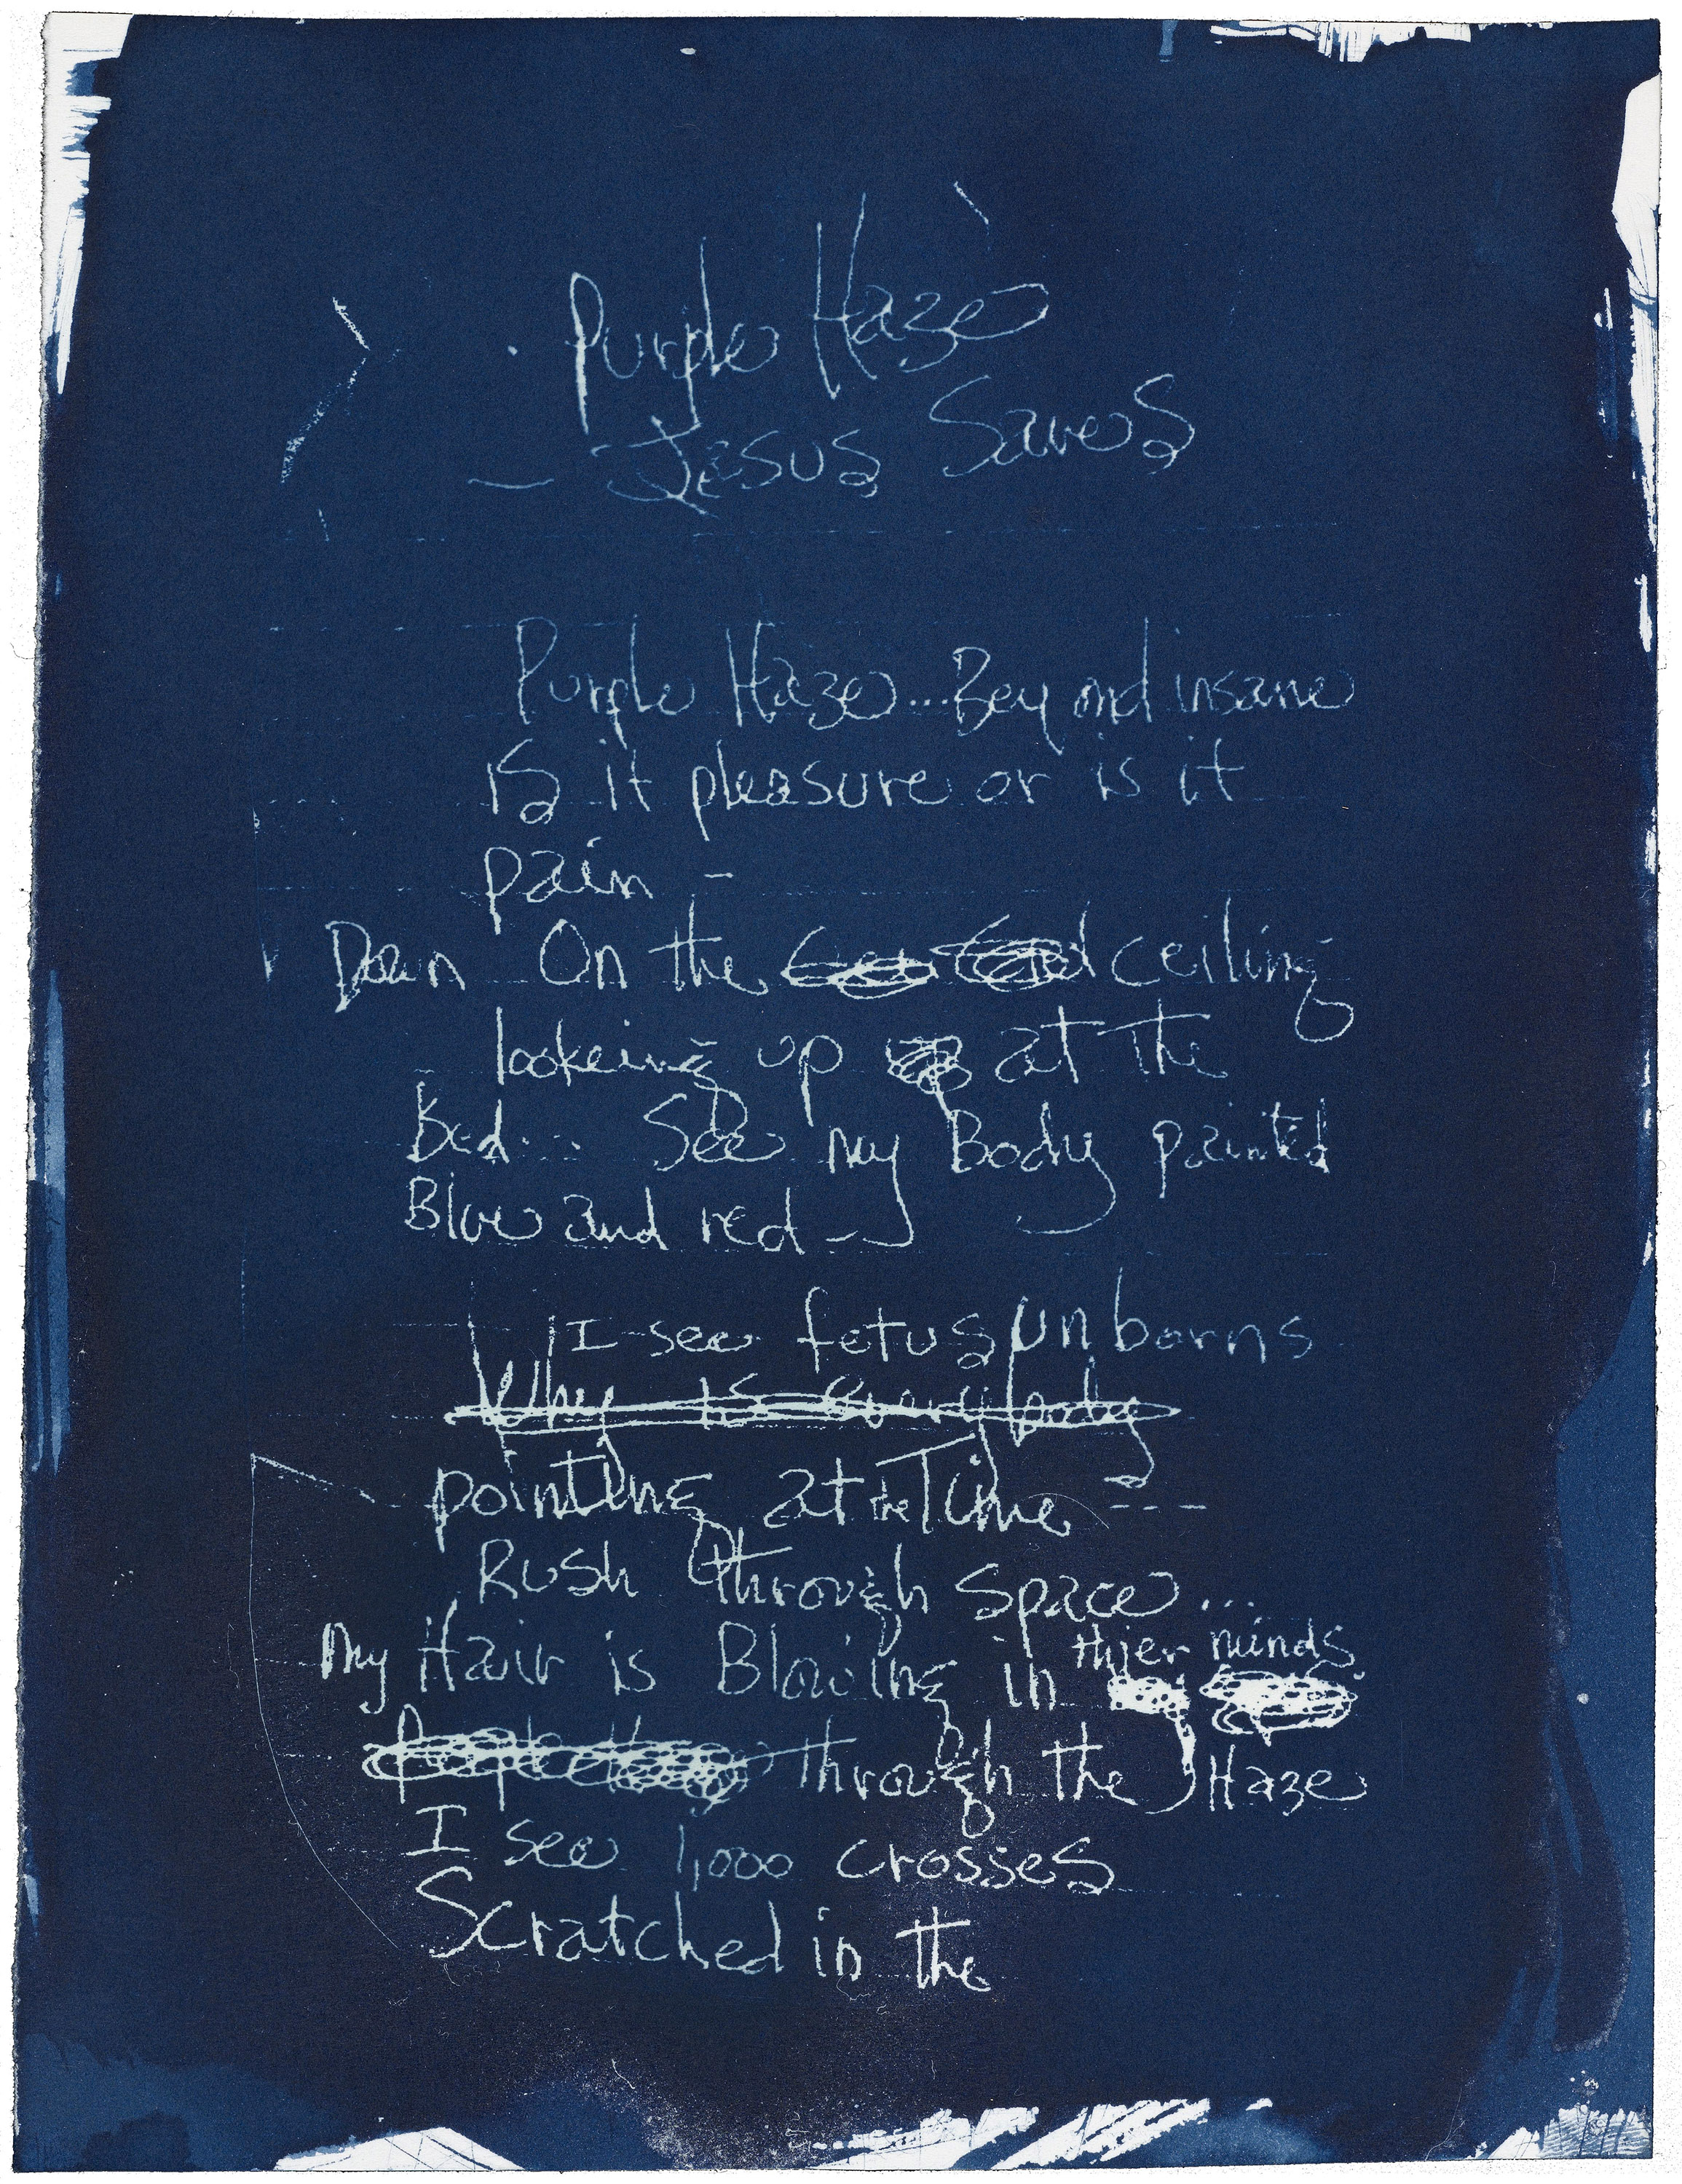 Purple Haze
— Jesus Saves
Purple Haze... Beyond insane
is it pleasure or is it
pain -
Down On the ceiling
lookeing up at the
Bed... See my Body painted
Blue and red -
I see fetus Unborns
Why is everybody
pointing at the Time ---
Rush through space...
My Hair is Blowing in thier minds
through the Haze
I see 1,000 crosses
Scratched in the